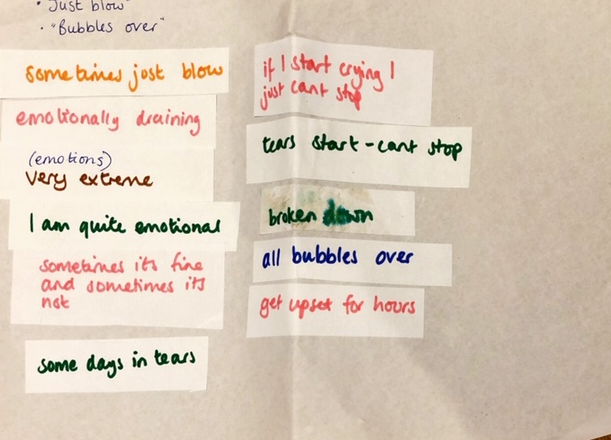 • Just blow"
• "Bubbles over"
sometimes just blow
emotionally draining
(emotions)
very extreme
I am quite emotional
sometimes its fine
and sometimes its
not
some days in tears
if I start crying I
just cant stop
tears start - cant stop
broken down
all bubbles over
get upset for hours